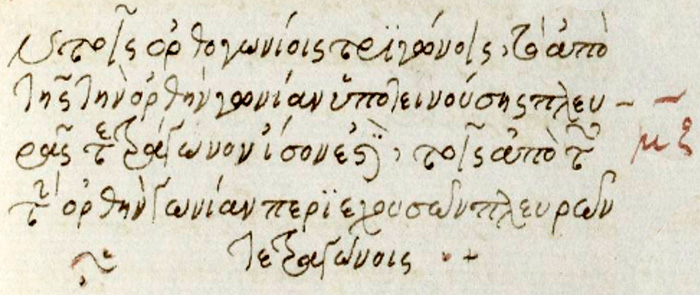 ν τοῖς ὀρθογωνίοις τριγώνοις, τὸ ἀπὸ
τῆς τὴν ὀρθὴν γωνίαν ὑποτεινούσης πλευ-
ρᾶς τετράγωνον ἴσον ἐστὶ, τοῖς ἀπὸ τῶν μζ
τὴν ὀρθὴν γωνίαν περϊεχουσῶν πλευρῶν
τετραγώνοις